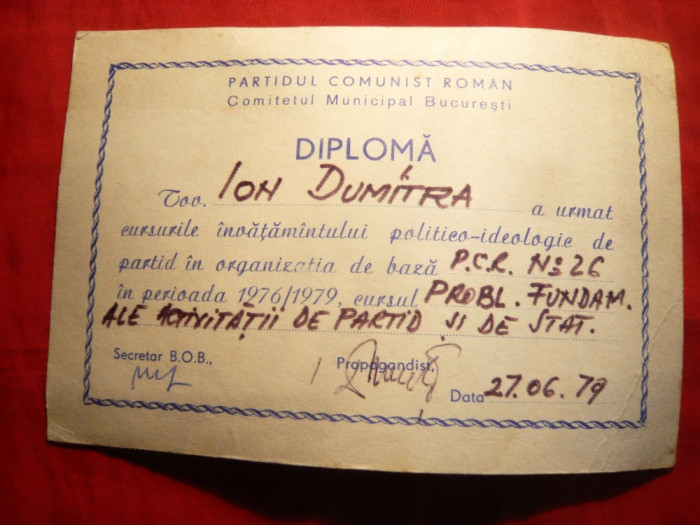 PARTIDUL COMUNIST ROMÂN
Comitetul Municipal București
DIPLOMĂ
Tov. ION DUMITRA a urmat
cursurile învățămîntului politico-ideologic de
partid în organizatia de bază P.C.R. No 26
în perioada 1976/1979, cursul PROBL. FUNDAM.
ALE ACTIVITAȚII DE PARTID ȘI DE STAT.
Secretar B.O.B., Propagandist,
Data 27.06.79